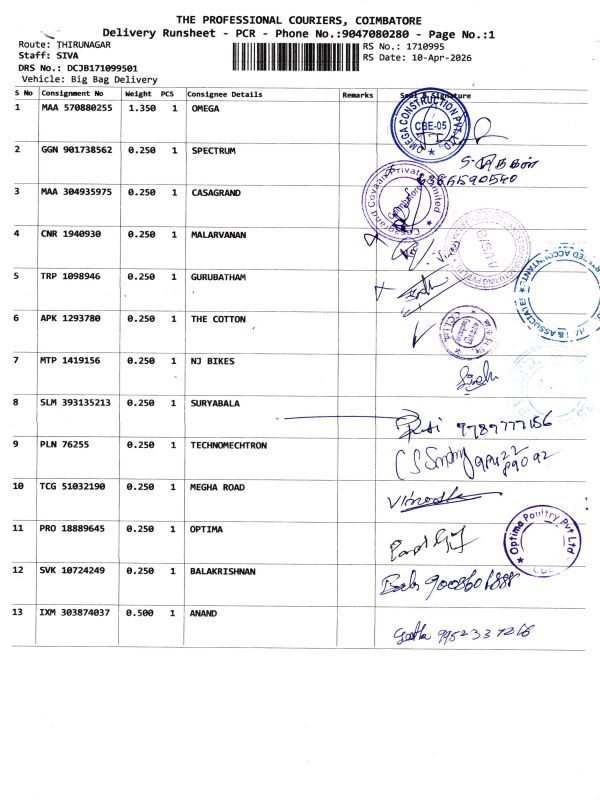 THE PROFESSIONAL COURIERS, COIMBATORE
Delivery Runsheet - PCR - Phone No.:9047080280 - Page No.:1
Route: THIRUNAGAR
Staff: SIVA
DRS No.: DCJB171099501
Vehicle: Big Bag Delivery
RS No.: 1710995
RS Date: 10-Apr-2026
S No Consignment No Weight PCS Consignee Details Remarks Seal & Signature
1 MAA 570880255 1.350 1 OMEGA
OMEGA CONSTRUCTION PVT LTD
CBE-05
2 GGN 901738562 0.250 1 SPECTRUM
3 MAA 304935975 0.250 1 CASAGRAND
Casagrand Covaan Private Limited
Coimbatore
4 CNR 1940930 0.250 1 MALARVANAN
5 TRP 1098946 0.250 1 GURUBATHAM
& ASSOCIATES
6 APK 1293780 0.250 1 THE COTTON
7 MTP 1419156 0.250 1 NJ BIKES
8 SLM 393135213 0.250 1 SURYABALA
9789777156
9 PLN 76255 0.250 1 TECHNOMECHTRON
10 TCG 51032190 0.250 1 MEGHA ROAD
11 PRO 18889645 0.250 1 OPTIMA
Optima Poultry Pvt Ltd
12 SVK 10724249 0.250 1 BALAKRISHNAN
13 IXM 303874037 0.500 1 ANAND